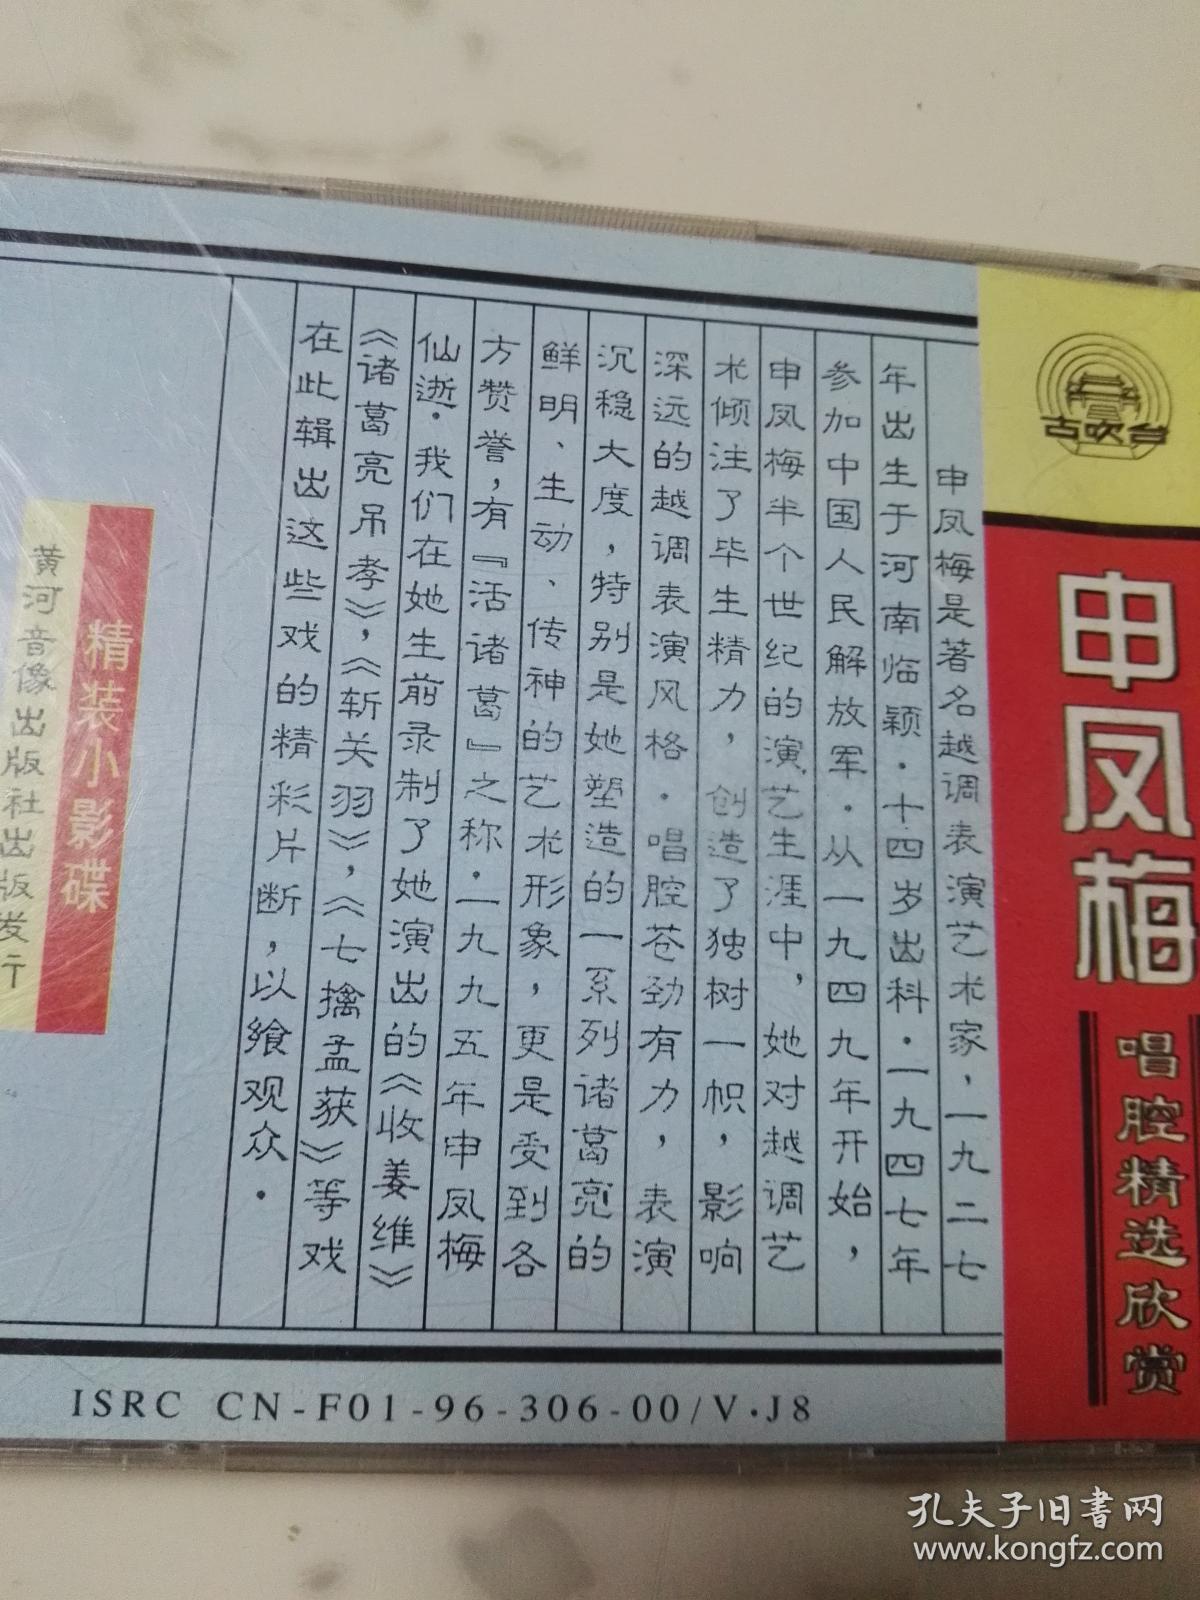 古吹台
申凤梅
唱腔精选欣赏
申凤梅是著名越调表演艺术家,一九二七
年出生于河南临颖.十四岁出科.一九四七年
参加中国人民解放军.从一九四九年开始,
申凤梅半个世纪的演艺生涯中,她对越调艺
术倾注了毕生精力,创造了独树一帜,影响
深远的越调表演风格.唱腔苍劲有力,表演
沉稳大度,特别是她塑造的一系列诸葛亮的
鲜明、生动、传神的艺术形象,更是受到各
方赞誉,有『活诸葛』之称.一九九五年申凤梅
仙逝.我们在她生前录制了她演出的《收姜维》
《诸葛亮吊孝》,《斩关羽》,《七擒孟获》等戏
在此辑出这些戏的精彩片断,以飨观众.
精装小影碟
黄河音像出版社出版发行
ISRC CN-F01-96-306-00/V·J8
孔夫子旧书网
www.kongfz.com